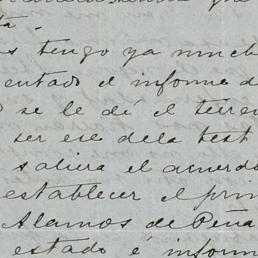 ta.
tengo ya much
entado el informe d
se le dí el terre
ser ese de la test
saliera el acuerdo
establecer el prim
Alamos de Peña
estado é inform